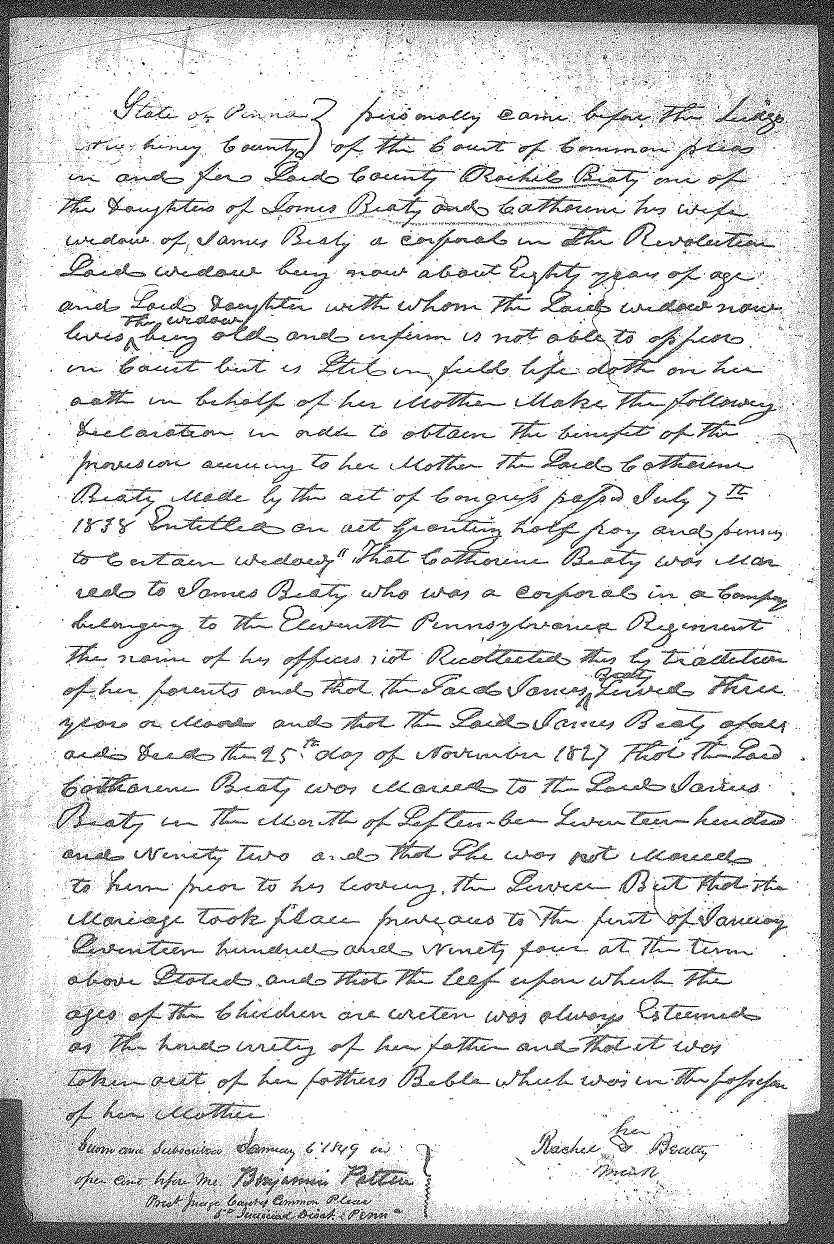 State of Penna } personally came before the Judge
County } of the Court of Common pleas
in and for Said County Rachel Beaty one of
the Daughters of James Beaty and Catharene his wife
widow of James Beaty a corporal in the Revolution
Said widow being now about Eighty years of age
and Said Daughter with whom the Said widow now
lives the widow being old and infirm is not able to appear
in Court but is Stil in full life doth on her
oath in behalf of her Mother Make the following
Declaration in order to obtain the benefit of the
provision accruing to her Mother the Said Catharene
Beaty Made by the act of Congress pass'd July 7th
1838 Entitled an act granting half pay and pension
to Certain widows" That Catharene Beaty was Mar
ried to James Beaty who was a corporal in a Company
belonging to the Eleventh Pennsylvania Regiment
the name of his officers not Recollected this by tradition
of her parents and that the Said James Beaty Served three
years or More and that the Said James Beaty afore
said died the 25th day of November 1827 That the Said
Catharene Beaty was Maried to the Said James
Beaty in the Month of September Seventeen hundred
and Ninety two and that She was not Maried
to him prior to his leaving the Service But that the
Mariage took place preveaus to the first of January
Seventeen hundred and Ninety four at the term
above Stated and that the leef upon which the
ages of the Children are wreten was always Esteemed
as the hand writing of her father and that it was
taken out of her fathers Beble which was in the possession
of her Mother
Sworn and Subscribed January 6 1849 in
open Court before me. Benjamin Patton
Prest Judge Court of Common Pleas
5th Judicial Dist. Penna
her
Rachel Beatty
mark